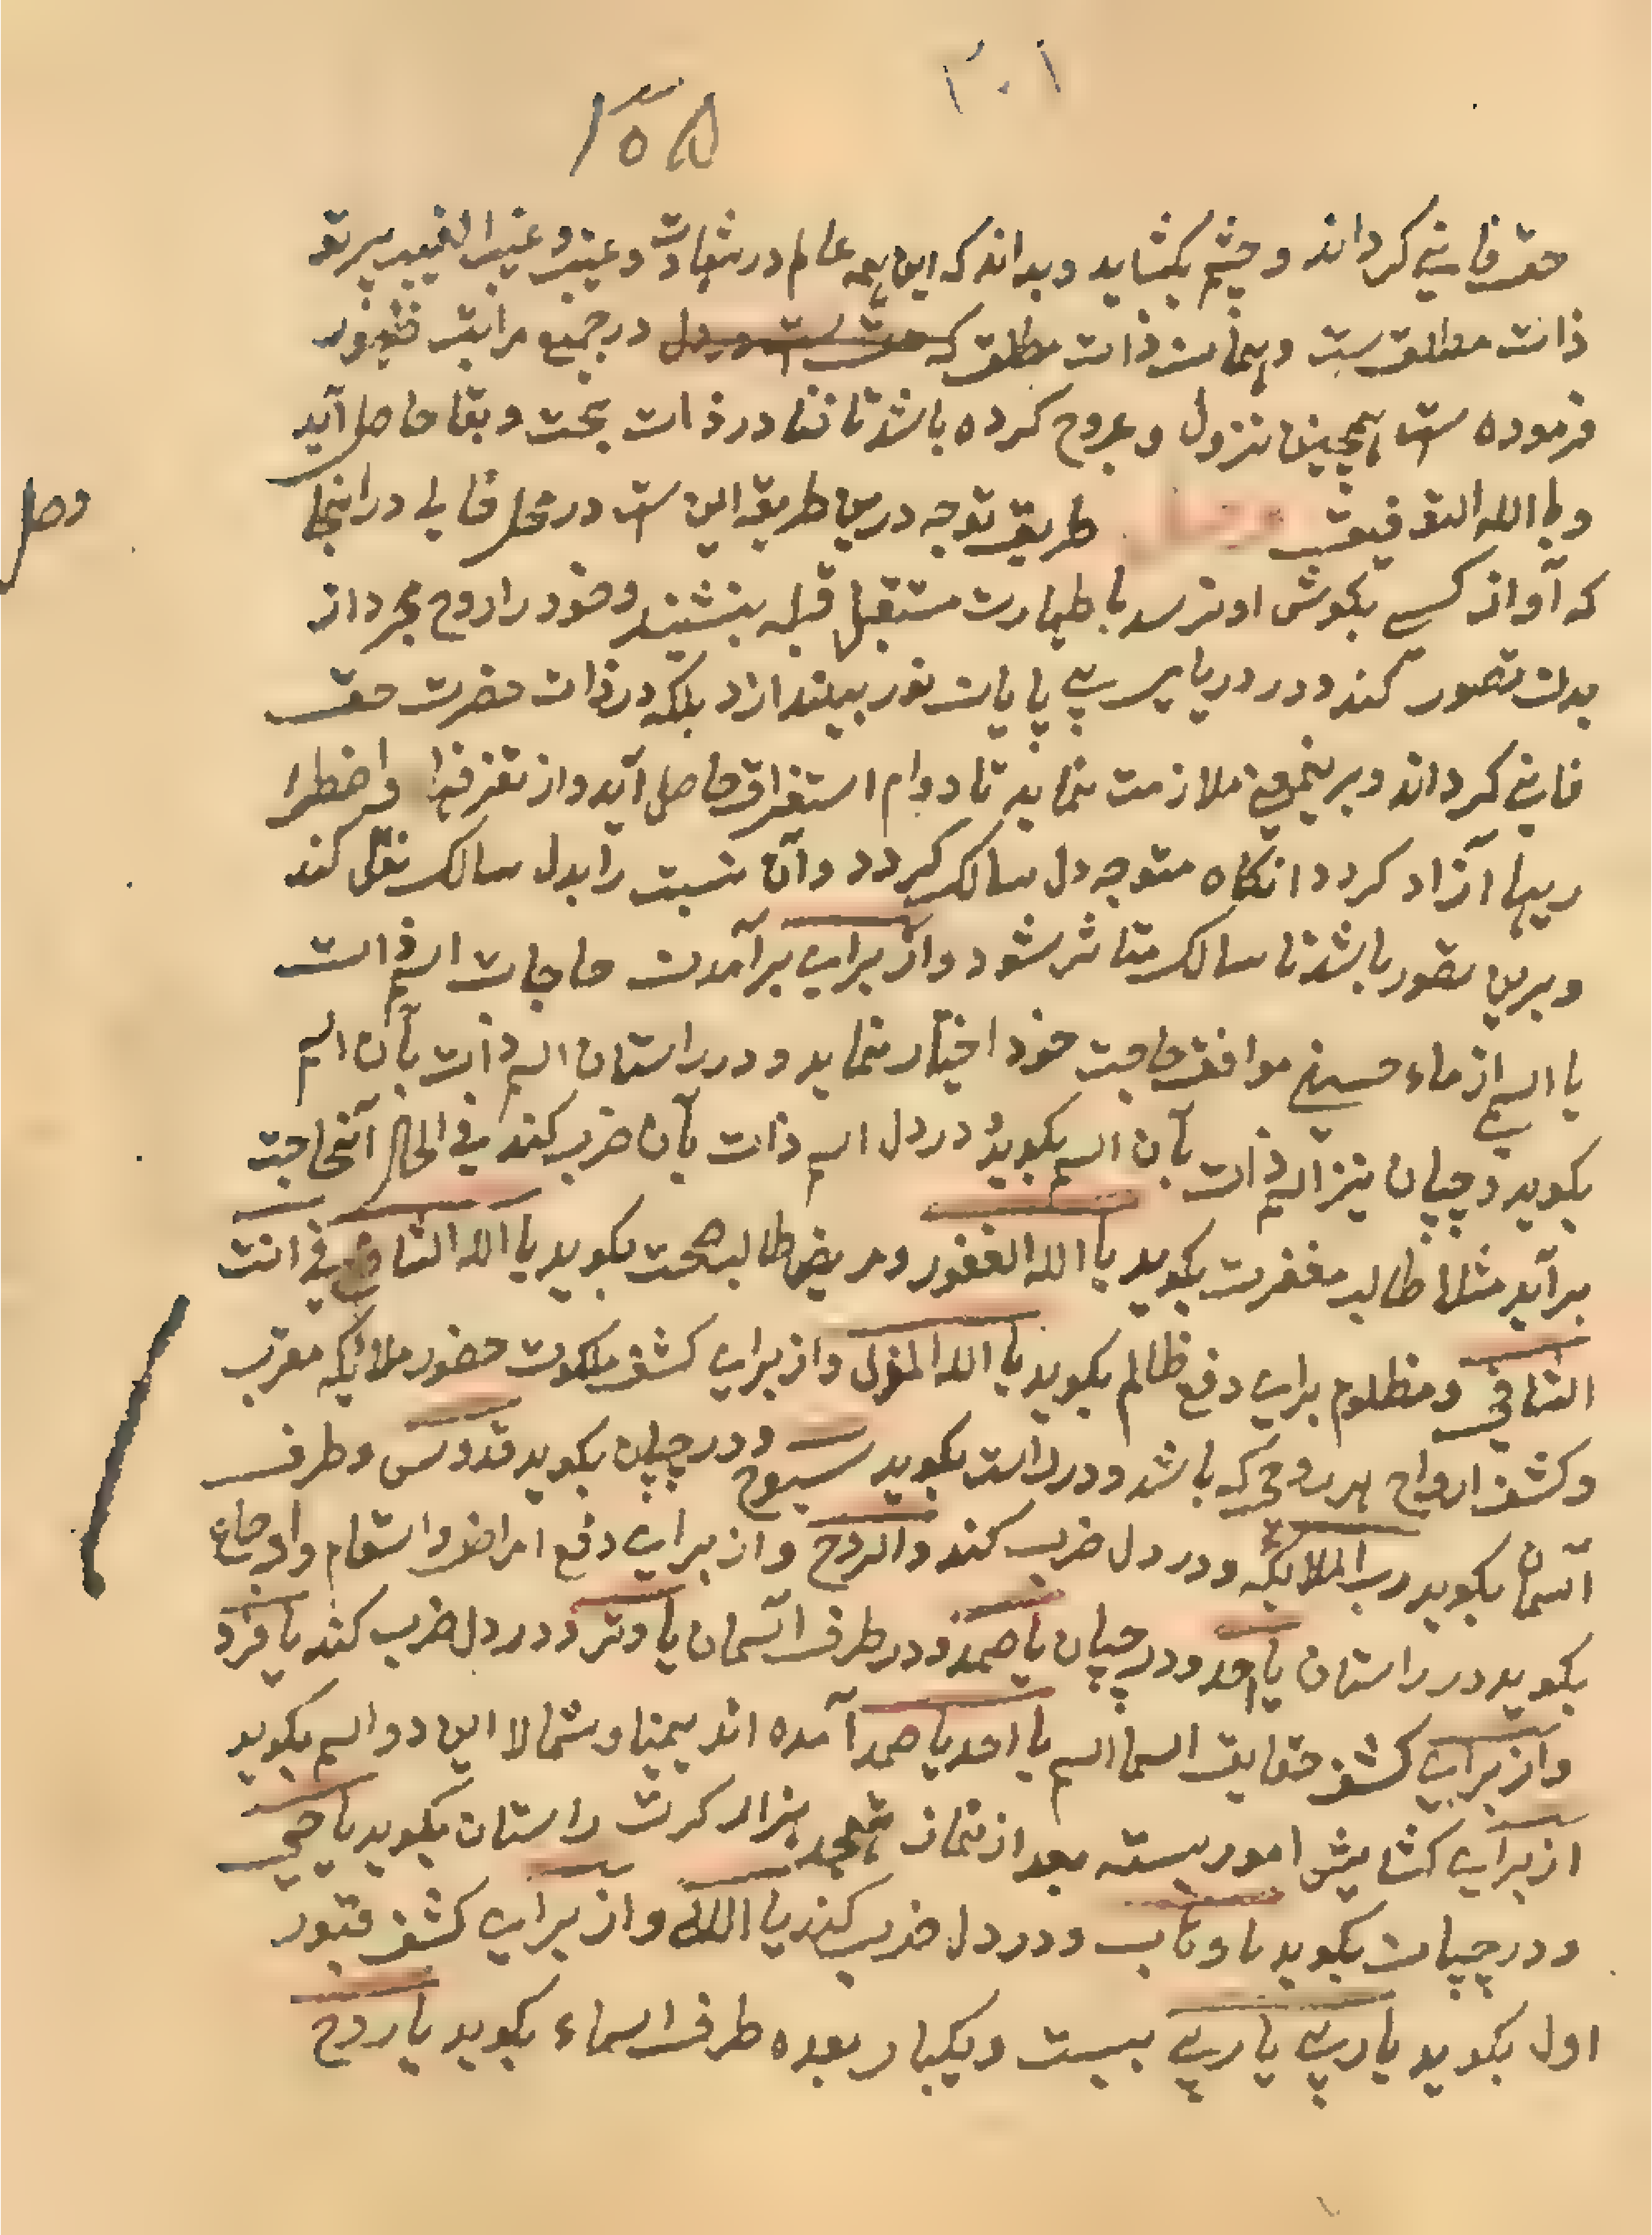 ۳۰۱
۱۵۵
حق فانی کرداند و چشم بکشاید و بداند که این همه عالم در شهادت و غیب و غیب الغیب پرتو
ذات مطلق ست و همان ذات مطلق که حق ست در جمیع مراتب ظهور
فرموده است همچنین نزول و عروج کرده باشد تا فنا در ذات بحت و بقا حاصل آید
و با الله التوفیق وصل طریق توجه درین طریقه این ست در محل خالی درانجا
وصل
که آواز کسی بکوش او نرسد با طهارت مستقبل قبله بنشیند و خود را روح مجرد از
بدن تصور کند و در دریای بے پایان نور بیندازد بلکه در ذات حضرت حق
فانی کرداند و برینمعنی ملازمت نماید تا دوام استغراق حاصل آید و از تفرقها و اضطرا
ریها آزاد کردد انکاه متوجه دل سالک کردد و آن نسبت را بدل سالک نقل کند
و برین تصور باشد تا سالک متاثر شود و از برای برآمدن حاجات اسم ذات
یا اسمی از ماء حسینی موافق حاجت خود اختیار نماید و در راستان اسم ذات بآن اسم
بکوید و چپان نیز اسم ذات بآن اسم بکوید و در دل اسم ذات بآن ضرب کند فی الحال آنحاجت
برآید مثلا طالب مغفرت بکوید یا الله الغفور و مریض طالب صحت بکوید یا الله الشافی انت
الشافی و مظلوم برای دفع ظالم بکوید یا الله المذل و از برای کشف ملکوت حضور ملائیکه مقرب
و کشف ارواح هر روحی که باشد و در راست بکوید سبوح و در چپان بکوید قدوس و طرف
آسمان بکوید رب الملائیکه و در دل ضرب کند والروح و از برای دفع امراض و اسقام و اوجاع
بکوید در راستان یا احد و در چپان یا صمد و در طرف آسمان یا وتر و در دل ضرب کند یا فرد
و از برای کشف حقایق اسما اسم یا احد یا صمد آمده اند یمینا و شمالا این دو اسم بکوید
از برای کشایش امور بسته بعد از نماز تهجد هزار کرت راستان بکوید یا حی
و در چپان بکوید یا وهاب و در دل ضرب کند یا الله و از برای کشف قبور
اول بکوید یا رب یا رب بیست و یکبار بعده طرف اسماء بکوید یا روح